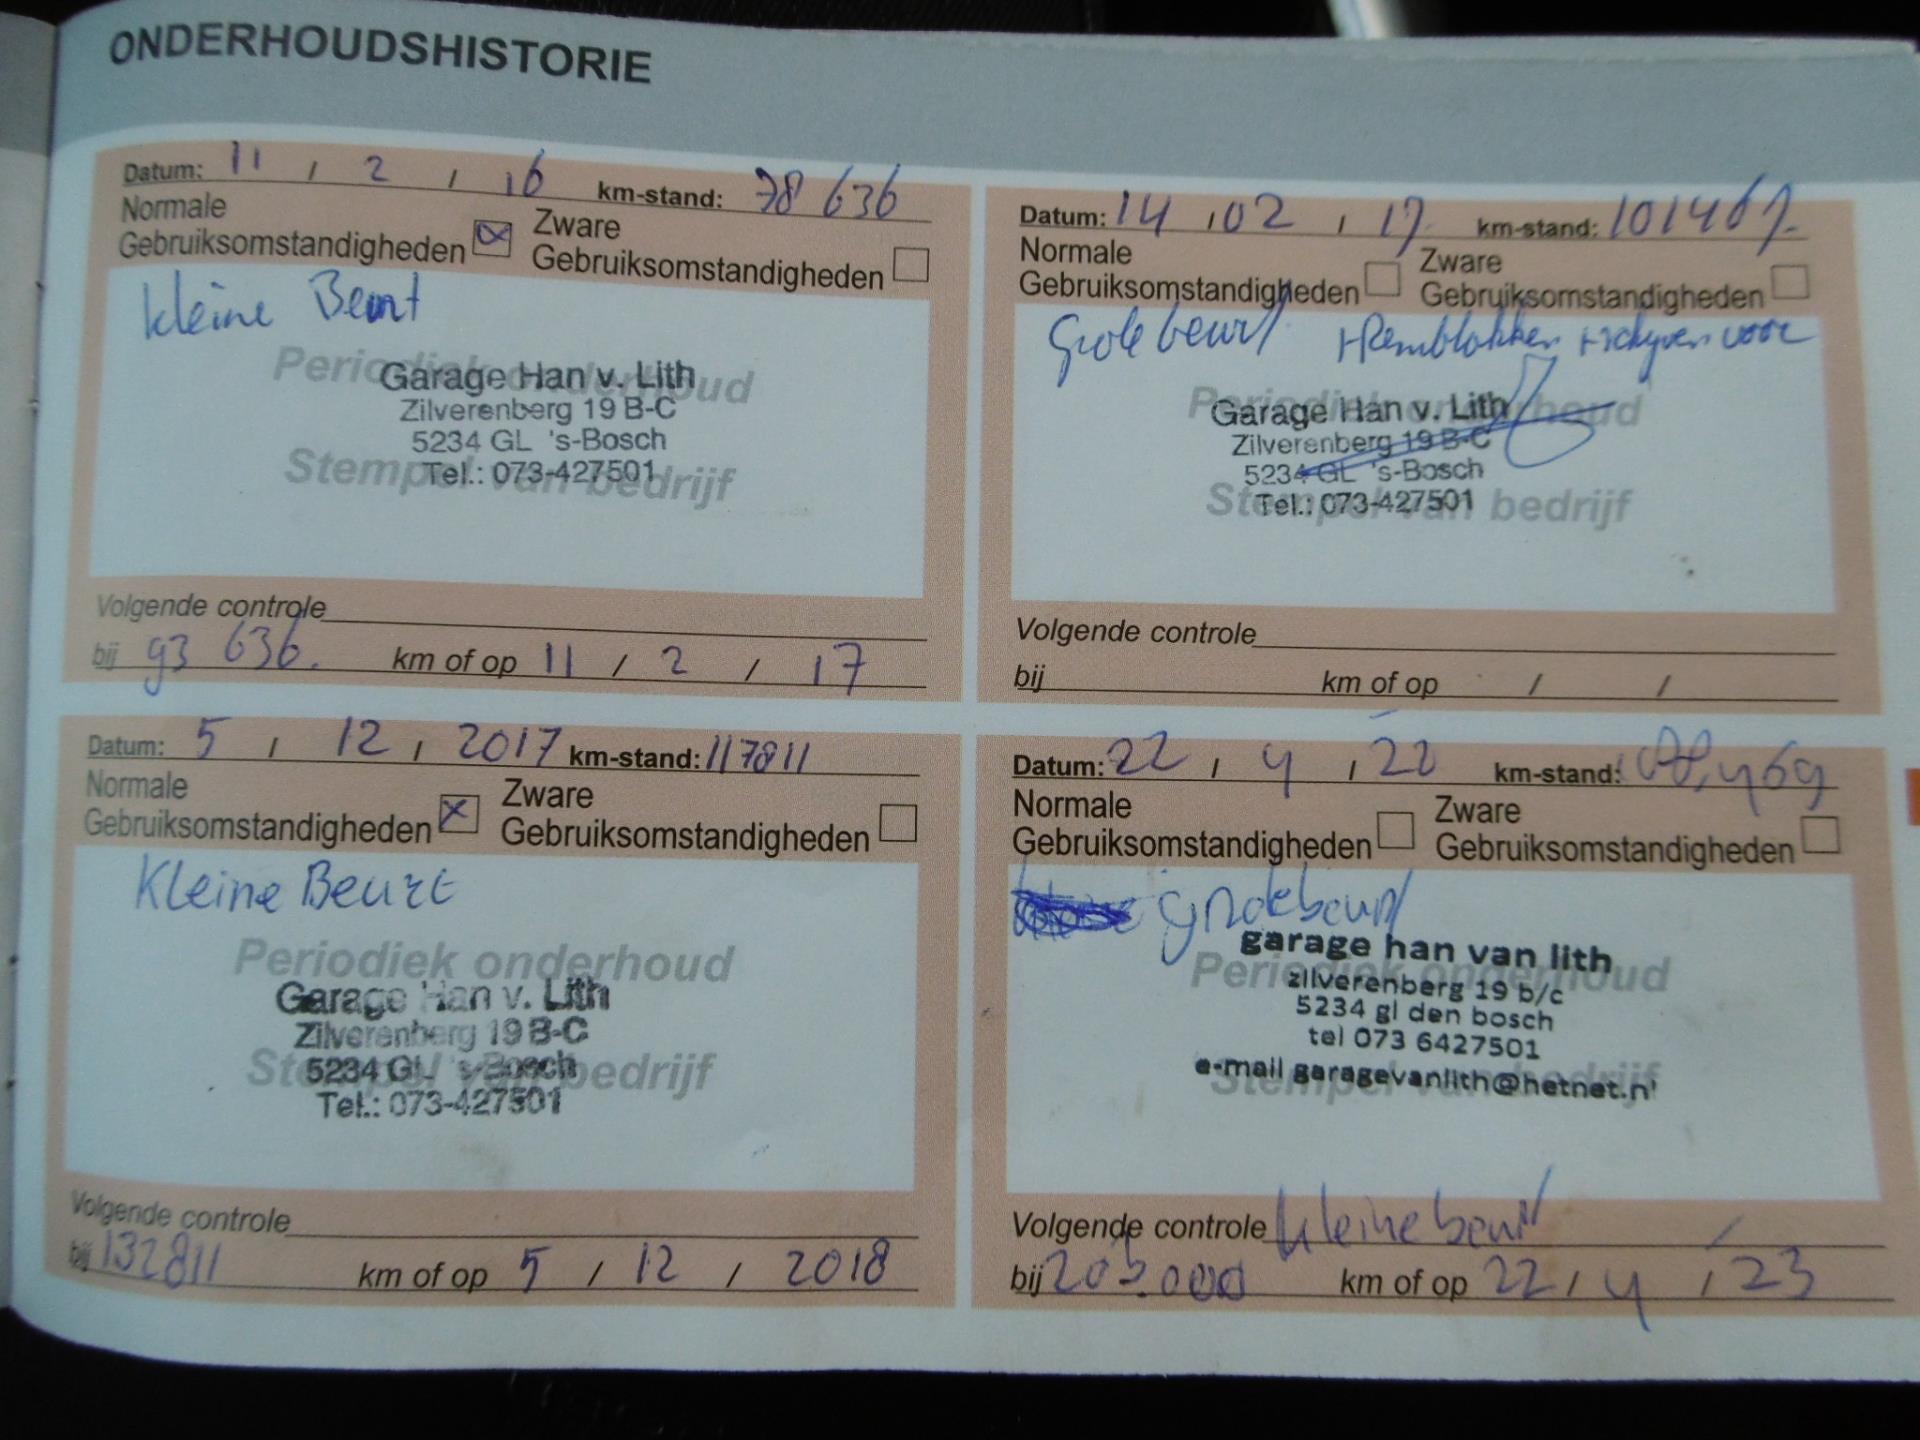 ONDERHOUDSHISTORIE
Datum: 11 / 2 / 16 km-stand: 78 636
Normale
Gebruiksomstandigheden
Zware
Gebruiksomstandigheden
kleine Beurt
Periodiek onderhoud
Garage Han v. Lith
Zilverenberg 19 B-C
5234 GL 's-Bosch
Stempel van bedrijf
Tel.: 073-427501
Volgende controle
bij 93 636. km of op 11 / 2 / 17
Datum: 14 / 02 / 17 km-stand: 101467
Normale
Gebruiksomstandigheden
Zware
Gebruiksomstandigheden
Grote beurt +Remblokken +schyven voor
Periodiek onderhoud
Garage Han v. Lith
Zilverenberg 19 B-C
5234 GL 's-Bosch
Stempel van bedrijf
Tel.: 073-427501
Volgende controle
bij km of op / /
Datum: 5 / 12 / 2017 km-stand: 117811
Normale
Gebruiksomstandigheden
Zware
Gebruiksomstandigheden
Kleine Beurt
Periodiek onderhoud
Garage Han v. Lith
Zilverenberg 19 B-C
5234 GL 's-Bosch
Stempel van bedrijf
Tel.: 073-427501
Volgende controle
bij 132811 km of op 5 / 12 / 2018
Datum: 22 / 4 / 22 km-stand:
Normale
Gebruiksomstandigheden
Zware
Gebruiksomstandigheden
Grotebeurt
garage han van lith
Periodiek onderhoud
zilverenberg 19 b/c
5234 gl den bosch
tel 073 6427501
e-mail garagevanlith@hetnet.nl
Stempel van bedrijf
Volgende controle kleine beurt
bij 205.000 km of op 22 / 4 / 23